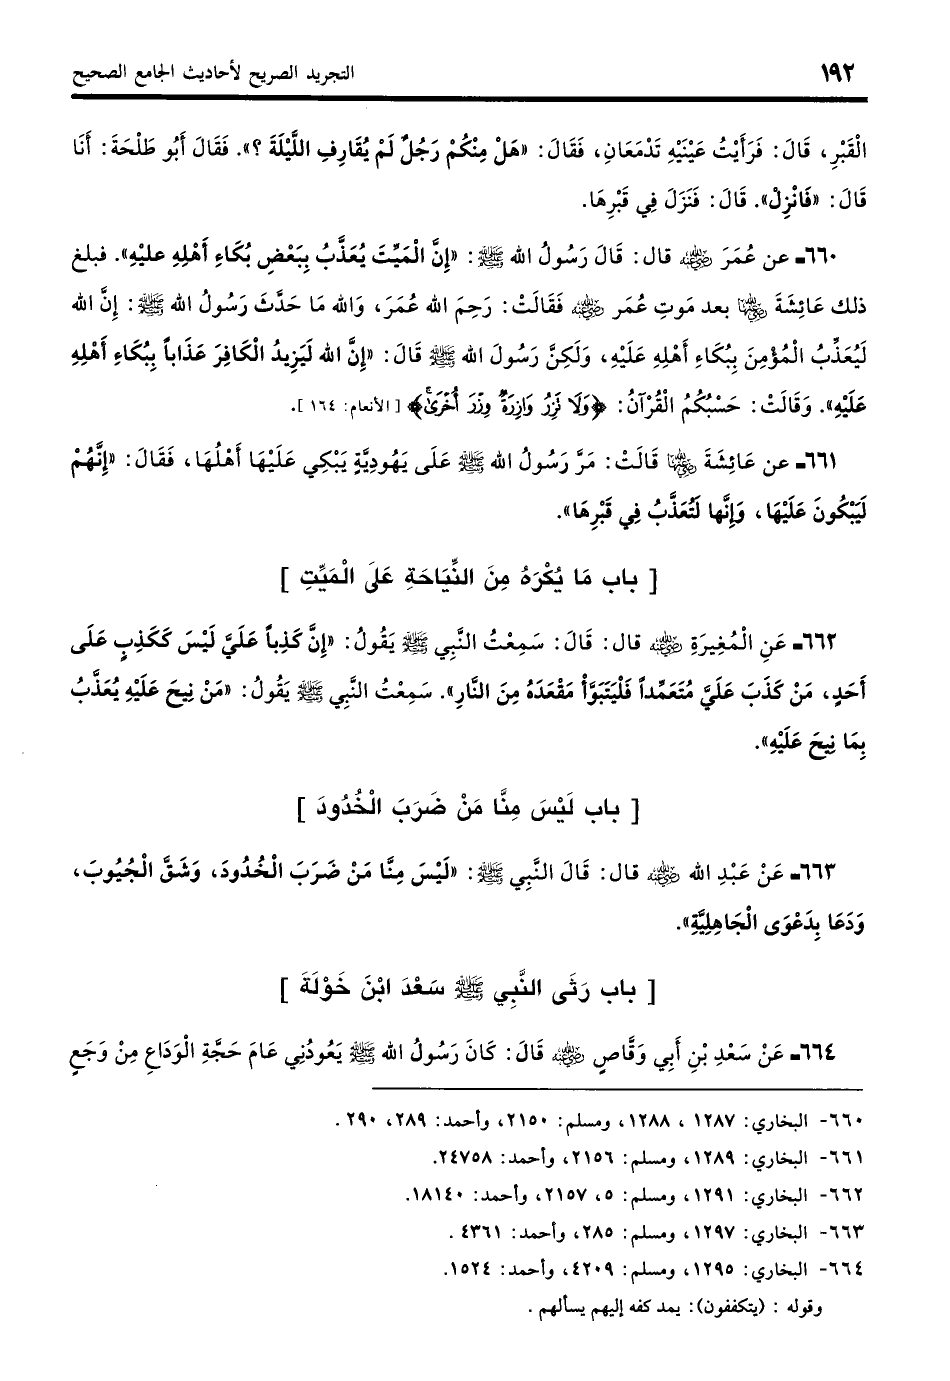 ١٩٢ التجريد الصريح لأحاديث الجامع الصحيح
الْقَبْرِ، قَالَ: فَرَأَيْتُ عَيْنَيْهِ تَدْمَعَانِ، فَقَالَ: «هَلْ مِنْكُمْ رَجُلٌ لَمْ يُقَارِفِ اللَّيْلَةَ ؟». فَقَالَ أَبُو طَلْحَةَ: أَنَا
قَالَ: «فَانْزِلْ». قَالَ: فَنَزَلَ فِي قَبْرِهَا.
٦٦٠ـ عن عُمَرَ رضي الله عنه قال: قَالَ رَسُولُ الله ﷺ: «إِنَّ الْمَيِّتَ يُعَذَّبُ بِبَعْضِ بُكَاءِ أَهْلِهِ عليهِ». فبلغ
ذلك عَائِشَةَ رضي الله عنها بعد مَوتِ عُمَر رضي الله عنه فَقَالَتْ: رَحِمَ الله عُمَرَ، وَالله مَا حَدَّثَ رَسُولُ الله ﷺ: إِنَّ الله
لَيُعَذِّبُ الْمُؤْمِنَ بِبُكَاءِ أَهْلِهِ عَلَيْهِ، وَلَكِنَّ رَسُولَ الله ﷺ قَالَ: «إِنَّ الله لَيَزِيدُ الْكَافِرَ عَذَاباً بِبُكَاءِ أَهْلِهِ
عَلَيْهِ». وَقَالَتْ: حَسْبُكُمُ الْقُرْآنُ: ﴿وَلَا نَزِرُ وَازِرَةٌ وِزْرَ أُخْرَىٰ﴾ [ الأنعام: ١٦٤ ].
٦٦١ـ عن عَائِشَةَ رضي الله عنها قَالَتْ: مَرَّ رَسُولُ الله ﷺ عَلَى يَهُودِيَّةٍ يَبْكِي عَلَيْهَا أَهْلُهَا، فَقَالَ: «إِنَّهُمْ
لَيَبْكُونَ عَلَيْهَا، وَإِنَّها لَتُعَذَّبُ فِي قَبْرِهَا».
[ باب مَا يُكْرَهُ مِنَ النِّيَاحَةِ عَلَى الْمَيِّتِ ]
٦٦٢ـ عَنِ الْمُغِيرَةِ رضي الله عنه قال: قَالَ: سَمِعْتُ النَّبِي ﷺ يَقُولُ: «إِنَّ كَذِباً عَلَيَّ لَيْسَ كَكَذِبٍ عَلَى
أَحَدٍ، مَنْ كَذَبَ عَلَيَّ مُتَعَمِّداً فَلْيَتَبَوَّأْ مَقْعَدَهُ مِنَ النَّارِ». سَمِعْتُ النَّبِي ﷺ يَقُولُ: «مَنْ نِيحَ عَلَيْهِ يُعَذَّبُ
بِمَا نِيحَ عَلَيْهِ».
[ باب لَيْسَ مِنَّا مَنْ ضَرَبَ الْخُدُودَ ]
٦٦٣ـ عَنْ عَبْدِ الله رضي الله عنه قال: قَالَ النَّبِي ﷺ: «لَيْسَ مِنَّا مَنْ ضَرَبَ الْخُدُودَ، وَشَقَّ الْجُيُوبَ،
وَدَعَا بِدَعْوَى الْجَاهِلِيَّةِ».
[ باب رَثَى النَّبِي ﷺ سَعْدَ ابْنَ خَوْلَةَ ]
٦٦٤ـ عَنْ سَعْدِ بْنِ أَبِي وَقَّاصٍ رضي الله عنه قَالَ: كَانَ رَسُولُ الله ﷺ يَعُودُنِي عَامَ حَجَّةِ الْوَدَاعِ مِنْ وَجَعٍ
٦٦٠- البخاري: ١٢٨٧ ، ١٢٨٨، ومسلم: ٢١٥٠، وأحمد: ٢٨٩، ٢٩٠ .
٦٦١- البخاري: ١٢٨٩، ومسلم: ٢١٥٦، وأحمد: ٢٤٧٥٨.
٦٦٢- البخاري: ١٢٩١، ومسلم: ٥، ٢١٥٧، وأحمد: ١٨١٤٠.
٦٦٣- البخاري: ١٢٩٧، ومسلم: ٢٨٥، وأحمد: ٤٣٦١ .
٦٦٤- البخاري: ١٢٩٥، ومسلم: ٤٢٠٩، وأحمد: ١٥٢٤.
وقوله : (يتكففون): يمد كفه إليهم يسألهم .